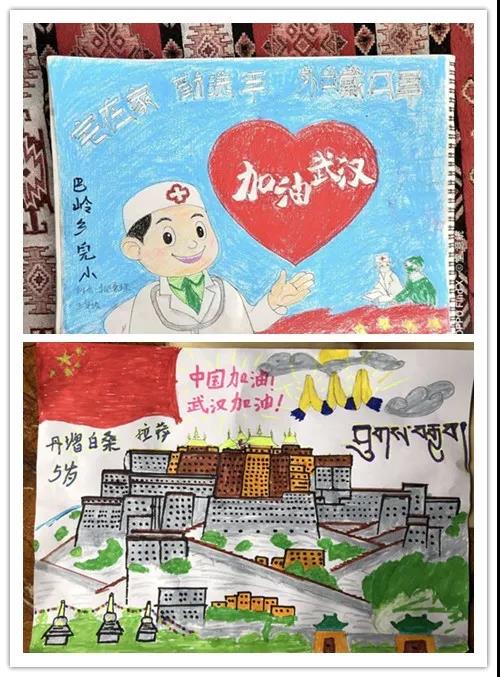 宅在家 勤洗手 外出戴口罩
加油武汉
巴岭乡完小
中国加油!
武汉加油!
丹增白桑 拉萨
5岁